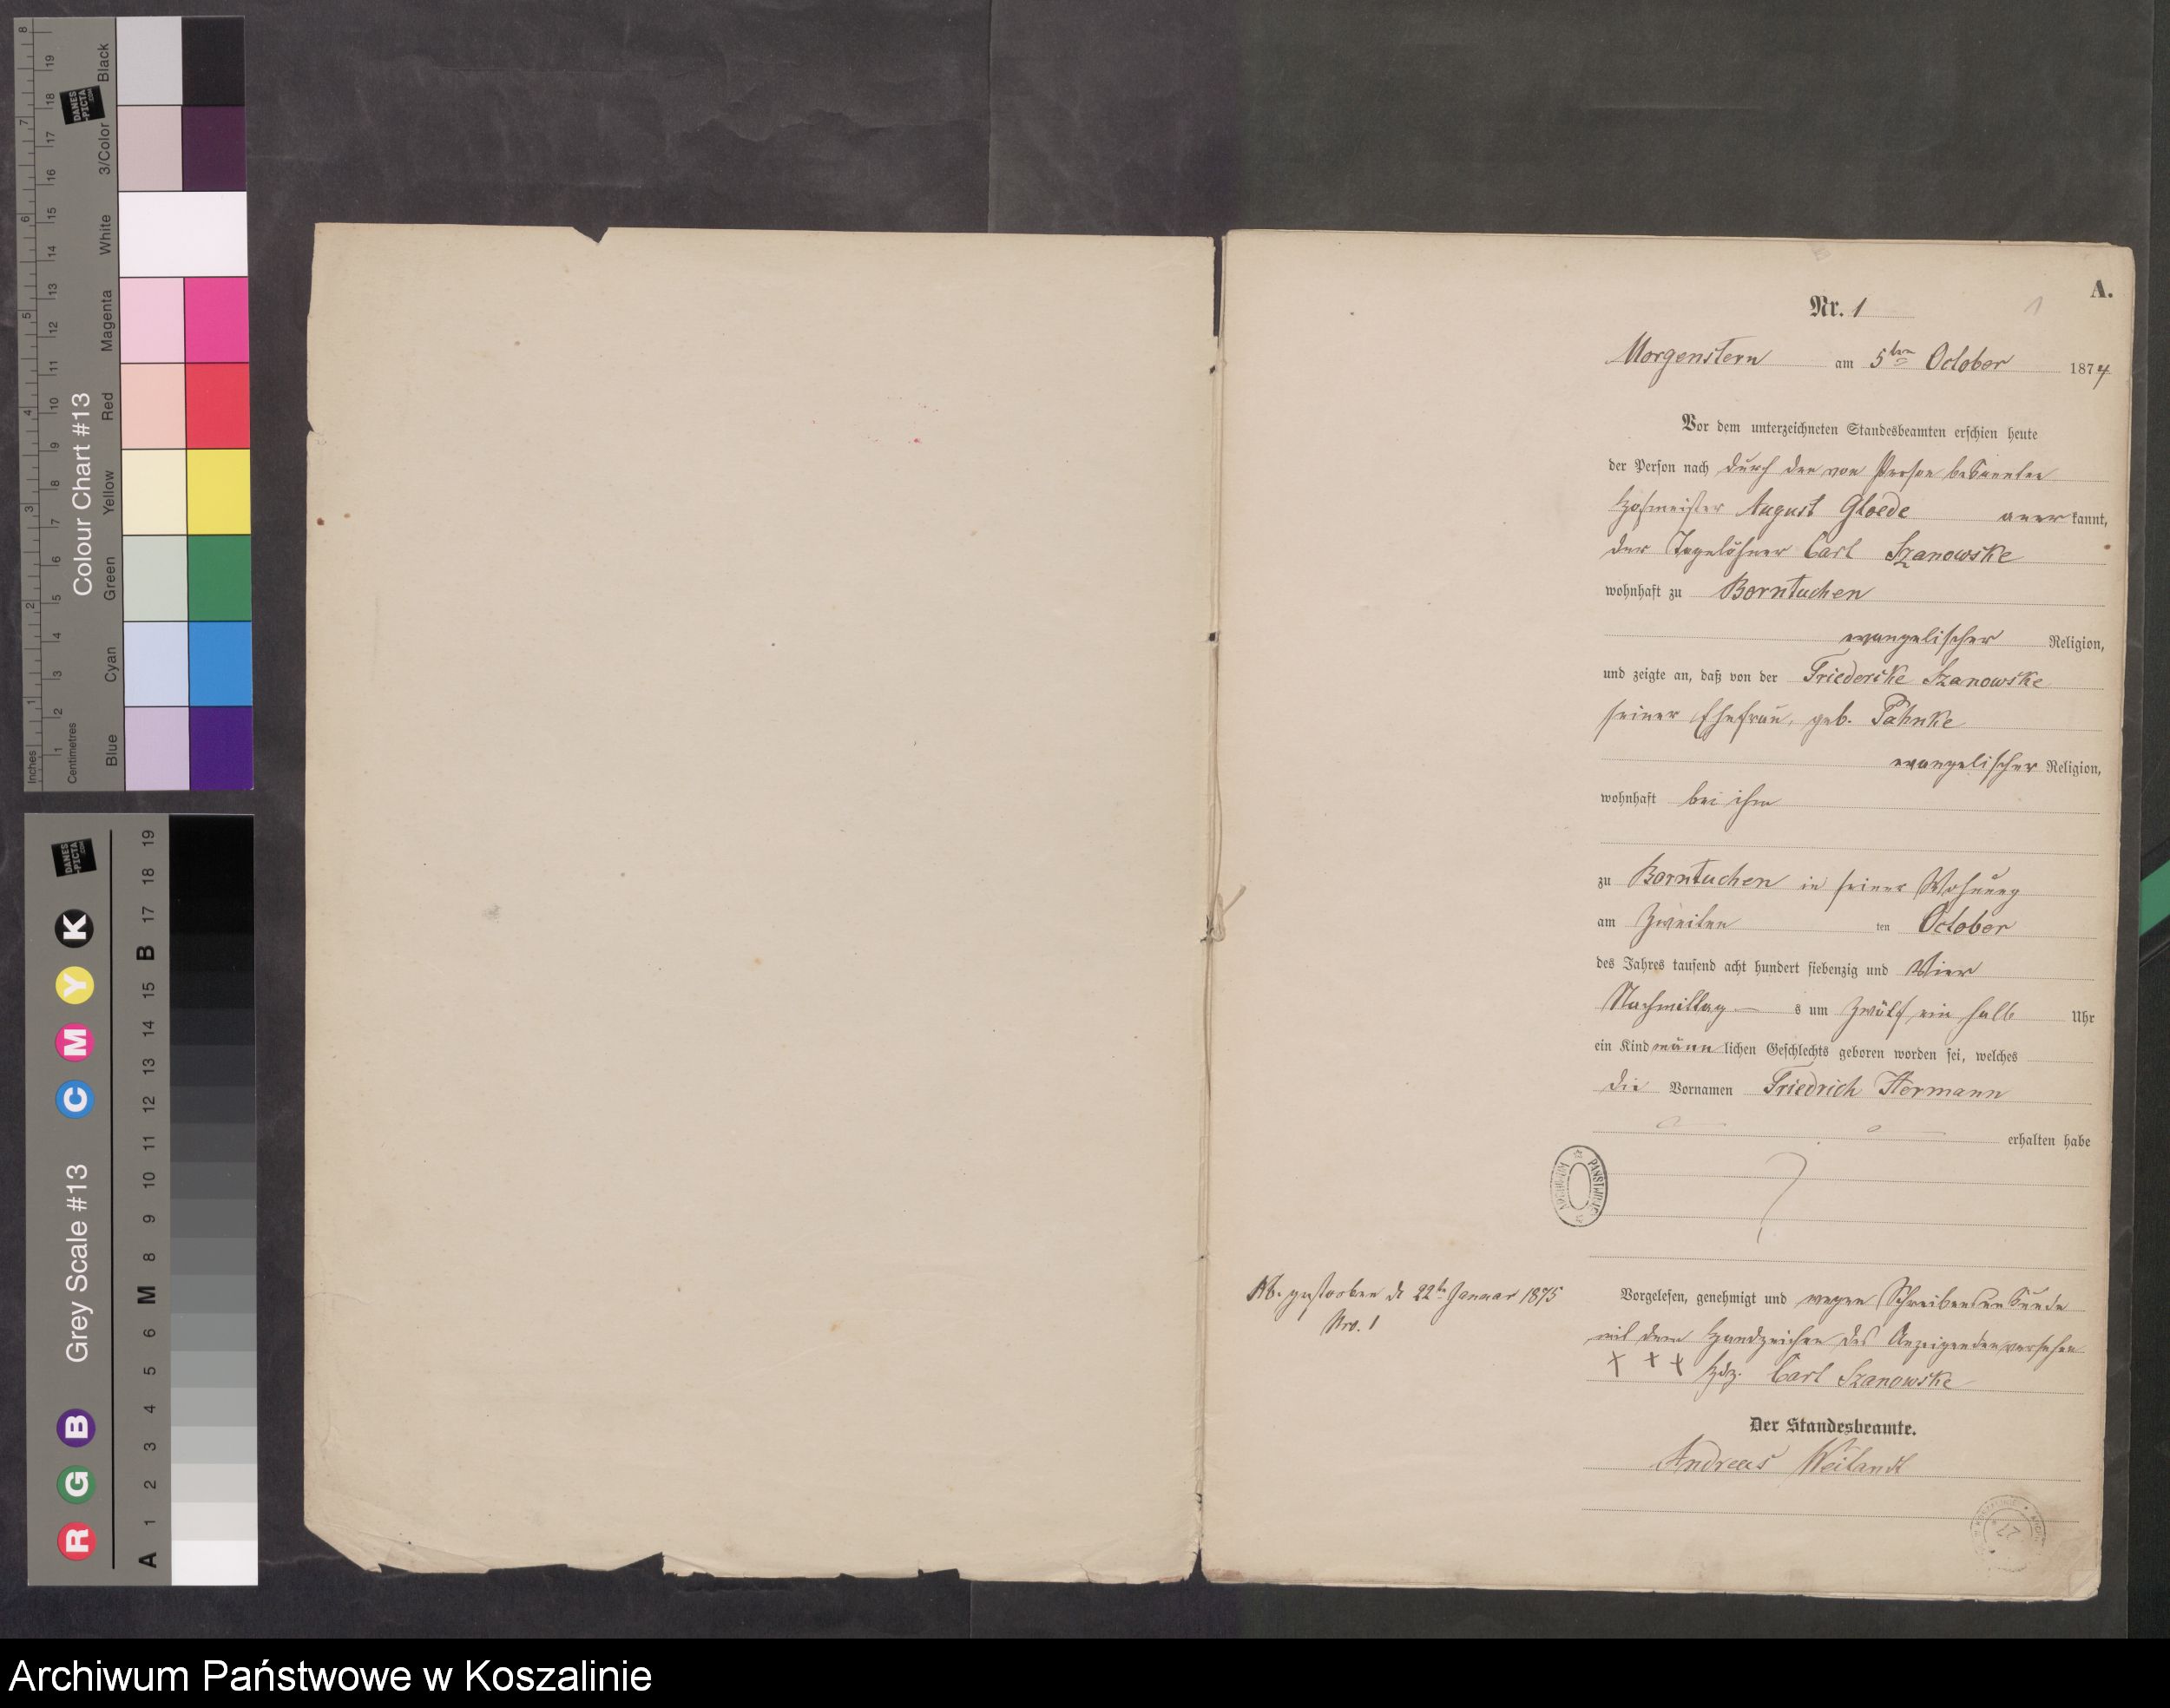 A.
Nr. 1
1
Morgenstern am 5ten October 1874
Vor dem unterzeichneten Standesbeamten erschien heute
der Person nach durch den von Person bekannten
Hofmeister August Gloede anerkannt,
der Tagelöhner Carl Szanowske
wohnhaft zu Borntuchen
evangelischer Religion,
und zeigte an, daß von der Friedericke Szanowske
seiner Ehefrau, geb. Pahnke
evangelischer Religion,
wohnhaft bei ihm
zu Borntuchen in seiner Wohnung
am Zweiten ten October
des Jahres tausend acht hundert siebenzig und Vier
Nachmittag s um Zwölf ein halb Uhr
ein Kind männlichen Geschlechts geboren worden sei, welches
die Vornamen Friedrich Hermann
erhalten habe
Vorgelesen, genehmigt und wegen Schreibensunkunde
mit dem Handzeichen des Anzeigenden versehen
+ + + Hdz. Carl Szanowske
Der Standesbeamte.
Andreas Weilandt
gestorben d 22t Januar 1875
Nro. 1
Inches
1 2 3 4 5 6 7 8
Centimetres
1 2 3 4 5 6 7 8 9 10 11 12 13 14 15 16 17 18 19
Colour Chart #13
Blue Cyan Green Yellow Red Magenta White 3/Color Black
DANES
-PICTA
.COM
Grey Scale #13
R G B C M Y K
DANES
-PICTA
.COM
A 1 2 3 4 5 6 M 8 9 10 11 12 13 14 15 B 17 18 19
Archiwum Państwowe w Koszalinie